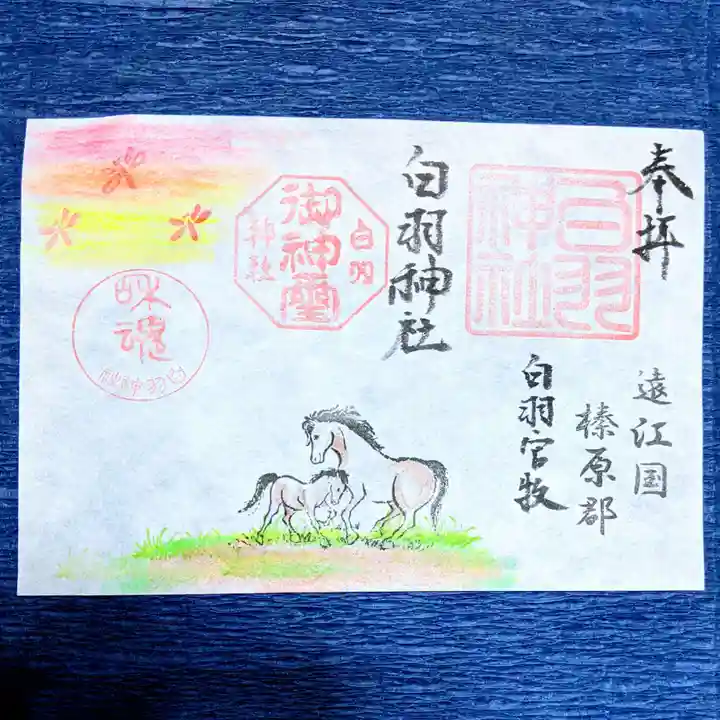 奉拝
白羽神社
遠江国
榛原郡
白羽官牧
白羽神社
白羽
御神璽
神社
咊魂
白羽神社